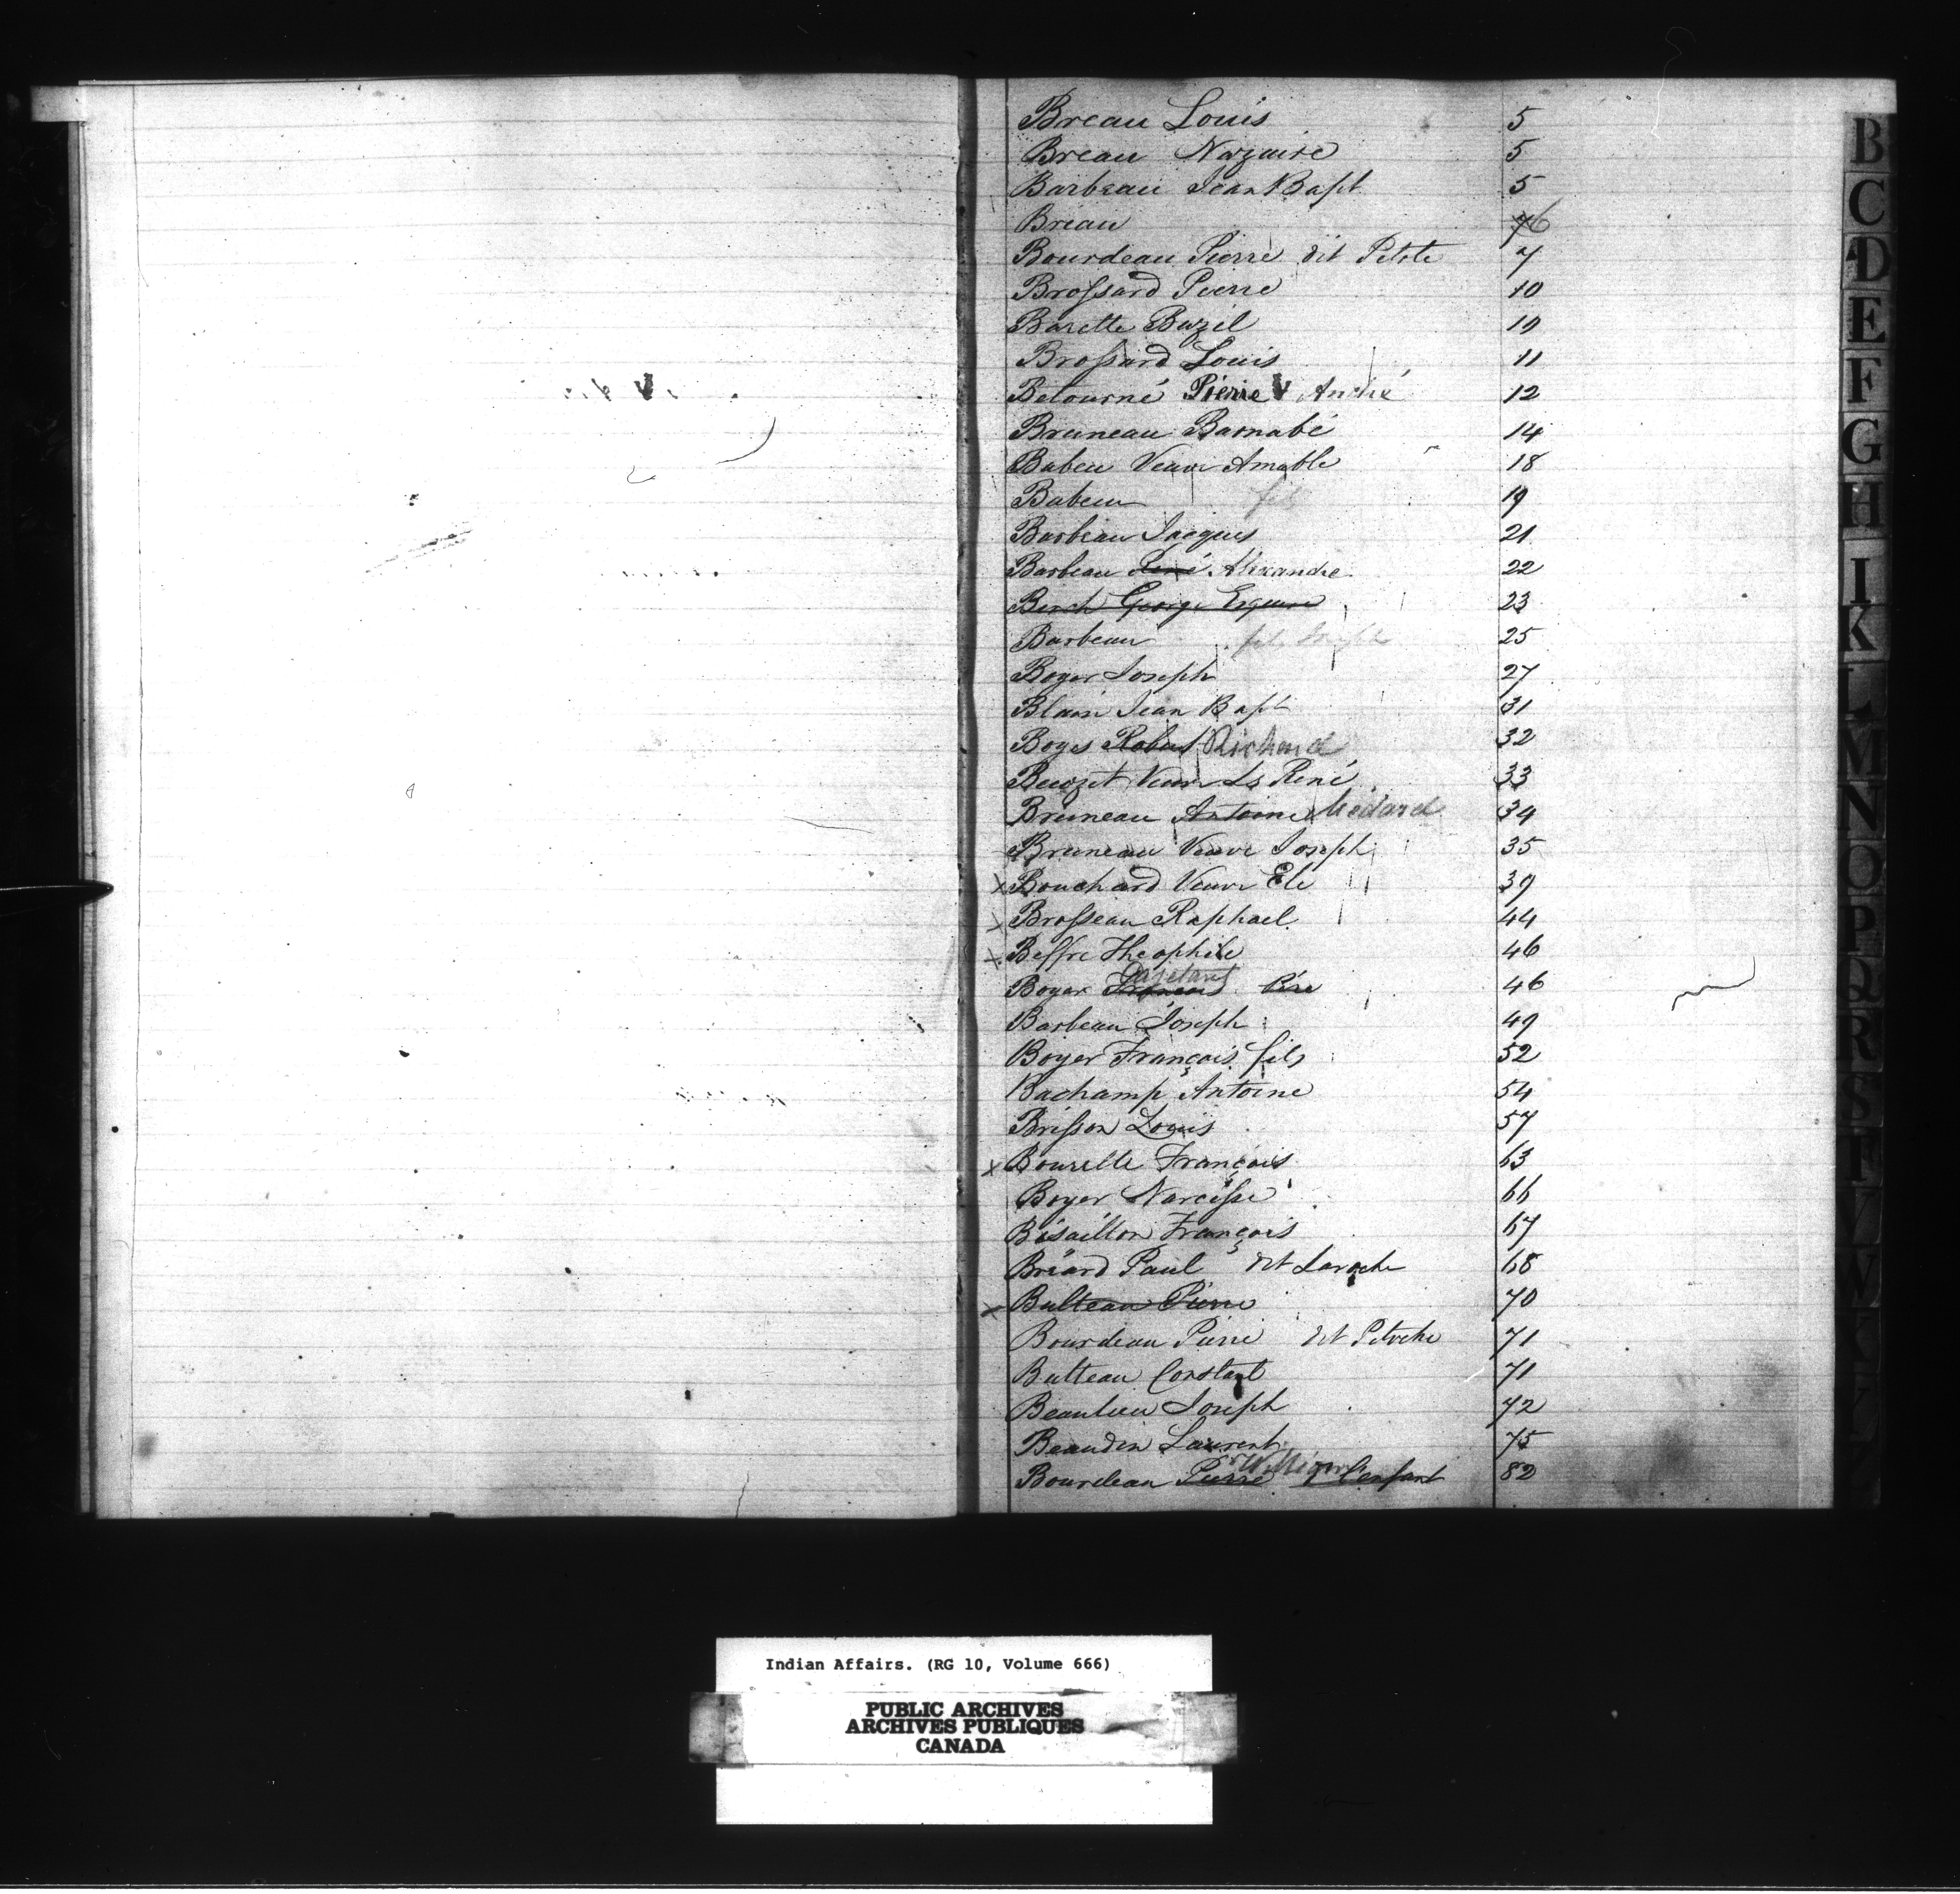 Breau Louis 5
Breau Nazaire 5
Barbeau Jean Bapt 5
Breau 76
Bourdeau Pierre dit Petete 7
Brossard Pierre 10
Barette Bazil 10
Brossard Louis 11
Betourné Pierre André 12
Bruneau Barnabé 14
Babeu Veuve Amable 18
Babeu fils 19
Barbeau Jacques 21
Barbeau René Alexandre 22
Berch George Esquire 23
Barbeau fils 25
Boyer Joseph 27
Blain Jean Bapt 31
Boyes Robert Richard 32
Veuve Ls René 33
Bruneau Antoine Médard 34
Bruneau Veuve Joseph 35
x Bouchard Veuve Ele 39
x Brosseau Raphael 44
x Beffre Theophile 46
Gasetant
Boyer Francois Père 46
Barbeau Joseph 49
Boyer François fils 52
Bachamp Antoine 54
Brisson Louis 57
x Bourelle François 63
Boyer Narcisse 66
Bisaillon François 67
Briard Paul dit Laroche 68
x Bulteau Pierre 70
Bourdeau Pierre dit Petoche 71
Bulteau Constant 71
Beaulieu Joseph 72
Beaudin Laurent 75
William
Bourdeau Pierre L'enfant 82
B
C
D
E
F
G
H
I
K
L
M
N
O
P
Q
R
S
T
V
W
Y
Indian Affairs. (RG 10, Volume 666)
PUBLIC ARCHIVES
ARCHIVES PUBLIQUES
CANADA